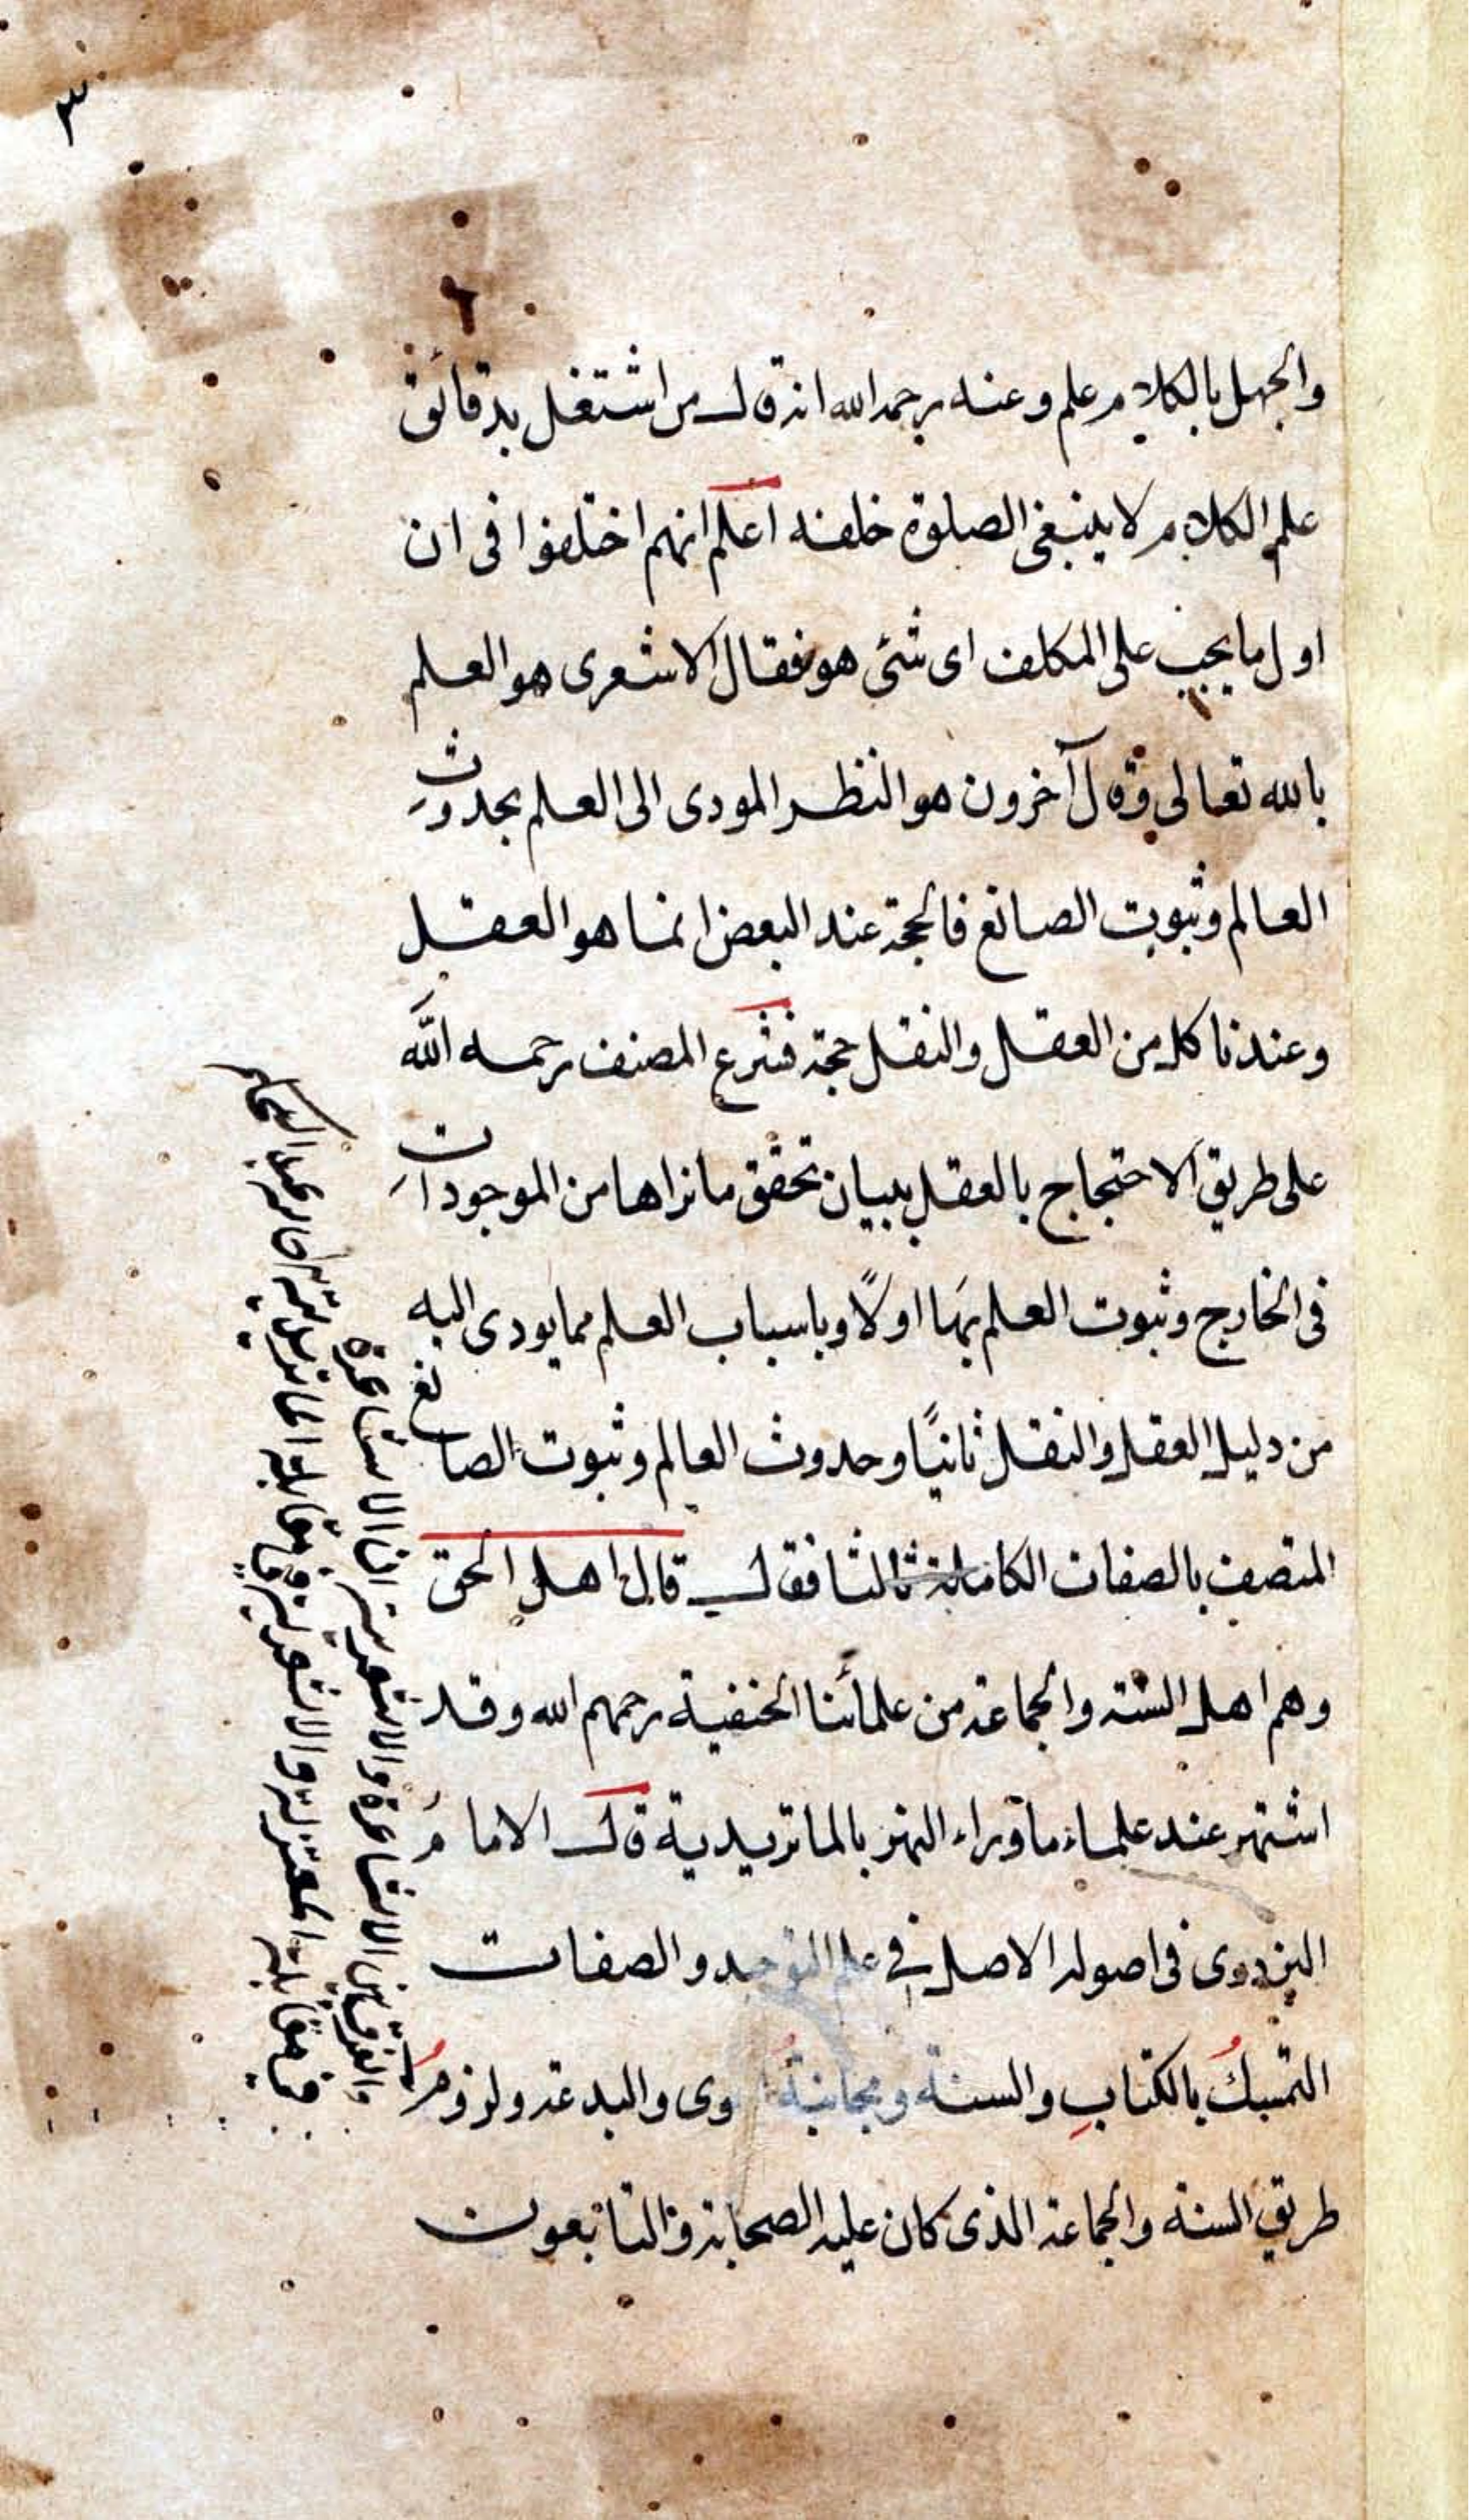 ٣
والجهل بالكلام علم وعنه رحمه الله انه قال من اشتغل بدقائق
علم الكلام لا ينبغى الصلوة خلفه اعلم انهم اختلفوا فى ان
اول ما يجب على المكلف اى شئ هو فقال الاشعرى هو العلم
بالله تعالى وقال آخرون هو النظر المودى الى العلم بحدوث
العالم وثبوت الصانع فالحجة عند البعض انما هو العقل
وعندنا كل من العقل والنقل حجة فشرع المصنف رحمه الله
على طريق الاحتجاج بالعقل ببيان تحقق ما نراها من الموجودات
فى الخارج وثبوت العلم بها اولاً وباسباب العلم مما يودى اليه
من دليل العقل والنقل ثانيًا وحدوث العالم وثبوت الصانع
المتصف بالصفات الكاملة ثالثا فقال قال اهل الحق
وهم اهل السنة والجماعة من علمائنا الحنفية رحمهم الله وقد
اشتهر عند علماء ما وراء النهر بالماتريدية قال الامامُ
البزدوى فى اصوله الاصل فى علم التوحيد والصفات
التمسكُ بالكتابِ والسنة ومجانبةُ وى والبدعة ولزومُ
طريق السنة والجماعة الذى كان عليه الصحابة والتابعون
والفرق بين الاشاعرة والاشعرية ان الاشاعرة
فى مقابلة المعتزلة والاشعرية فى مقابلة الماتريدية